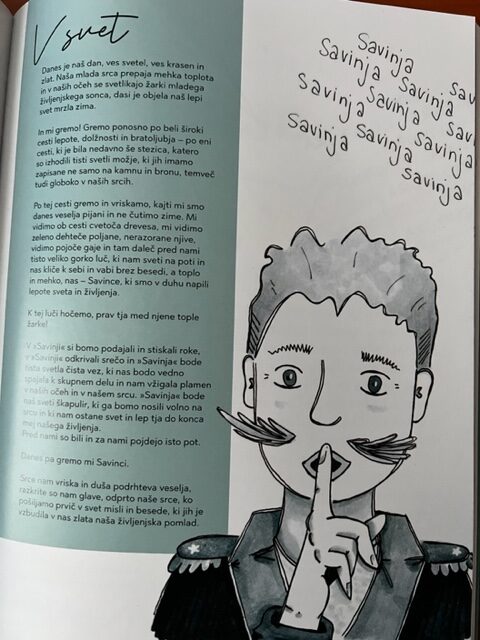 V svet
Danes je naš dan, ves svetel, ves krasen in
zlat. Naša mlada srca prepaja mehka toplota
in v naših očeh se svetlikajo žarki mladega
življenjskega sonca, dasi je objela naš lepi
svet mrzla zima.
In mi gremo! Gremo ponosno po beli široki
cesti lepote, dolžnosti in bratoljubja – po eni
cesti, ki je bila nedavno še stezica, katero
so izhodili tisti svetli možje, ki jih imamo
zapisane ne samo na kamnu in bronu, temveč
tudi globoko v naših srcih.
Po tej cesti gremo in vriskamo, kajti mi smo
danes veselja pijani in ne čutimo zime. Mi
vidimo ob cesti cvetoča drevesa, mi vidimo
zeleno dehteče poljane, nerazorane njive,
vidimo pojoče gaje in tam daleč pred nami
tisto veliko gorko luč, ki nam sveti na poti in
nas kliče k sebi in vabi brez besedi, a toplo
in mehko, nas – Savince, ki smo v duhu napili
lepote sveta in življenja.
K tej luči hočemo, prav tja med njene tople
žarke!
V »Savinji« si bomo podajali in stiskali roke,
v »Savinja« odkrivali srečo in »Savinja« bode
tista svetla čista vez, ki nas bodo vedno
spajala k skupnem delu in nam vžigala plamen
v naših očeh in v našem srcu. »Savinja« bode
naš sveti škapulir, ki ga bomo nosili volno na
srcu in ki nam ostane svet in lep tja do konca
mej našega življenja.
Pred nami so bili in za nami pojdejo isto pot.
Danes pa gremo mi Savinci.
Srce nam vriska in duša podrhteva veselja,
razkrite so nam glave, odprto naše srce, ko
pošiljamo prvič v svet misli in besede, ki jih je
vzbudila v nas zlata naša življenjska pomlad.
Savinja
Savinja Savinja Sav
Savinja Savinja Sav
Savinja Savinja
Savinja